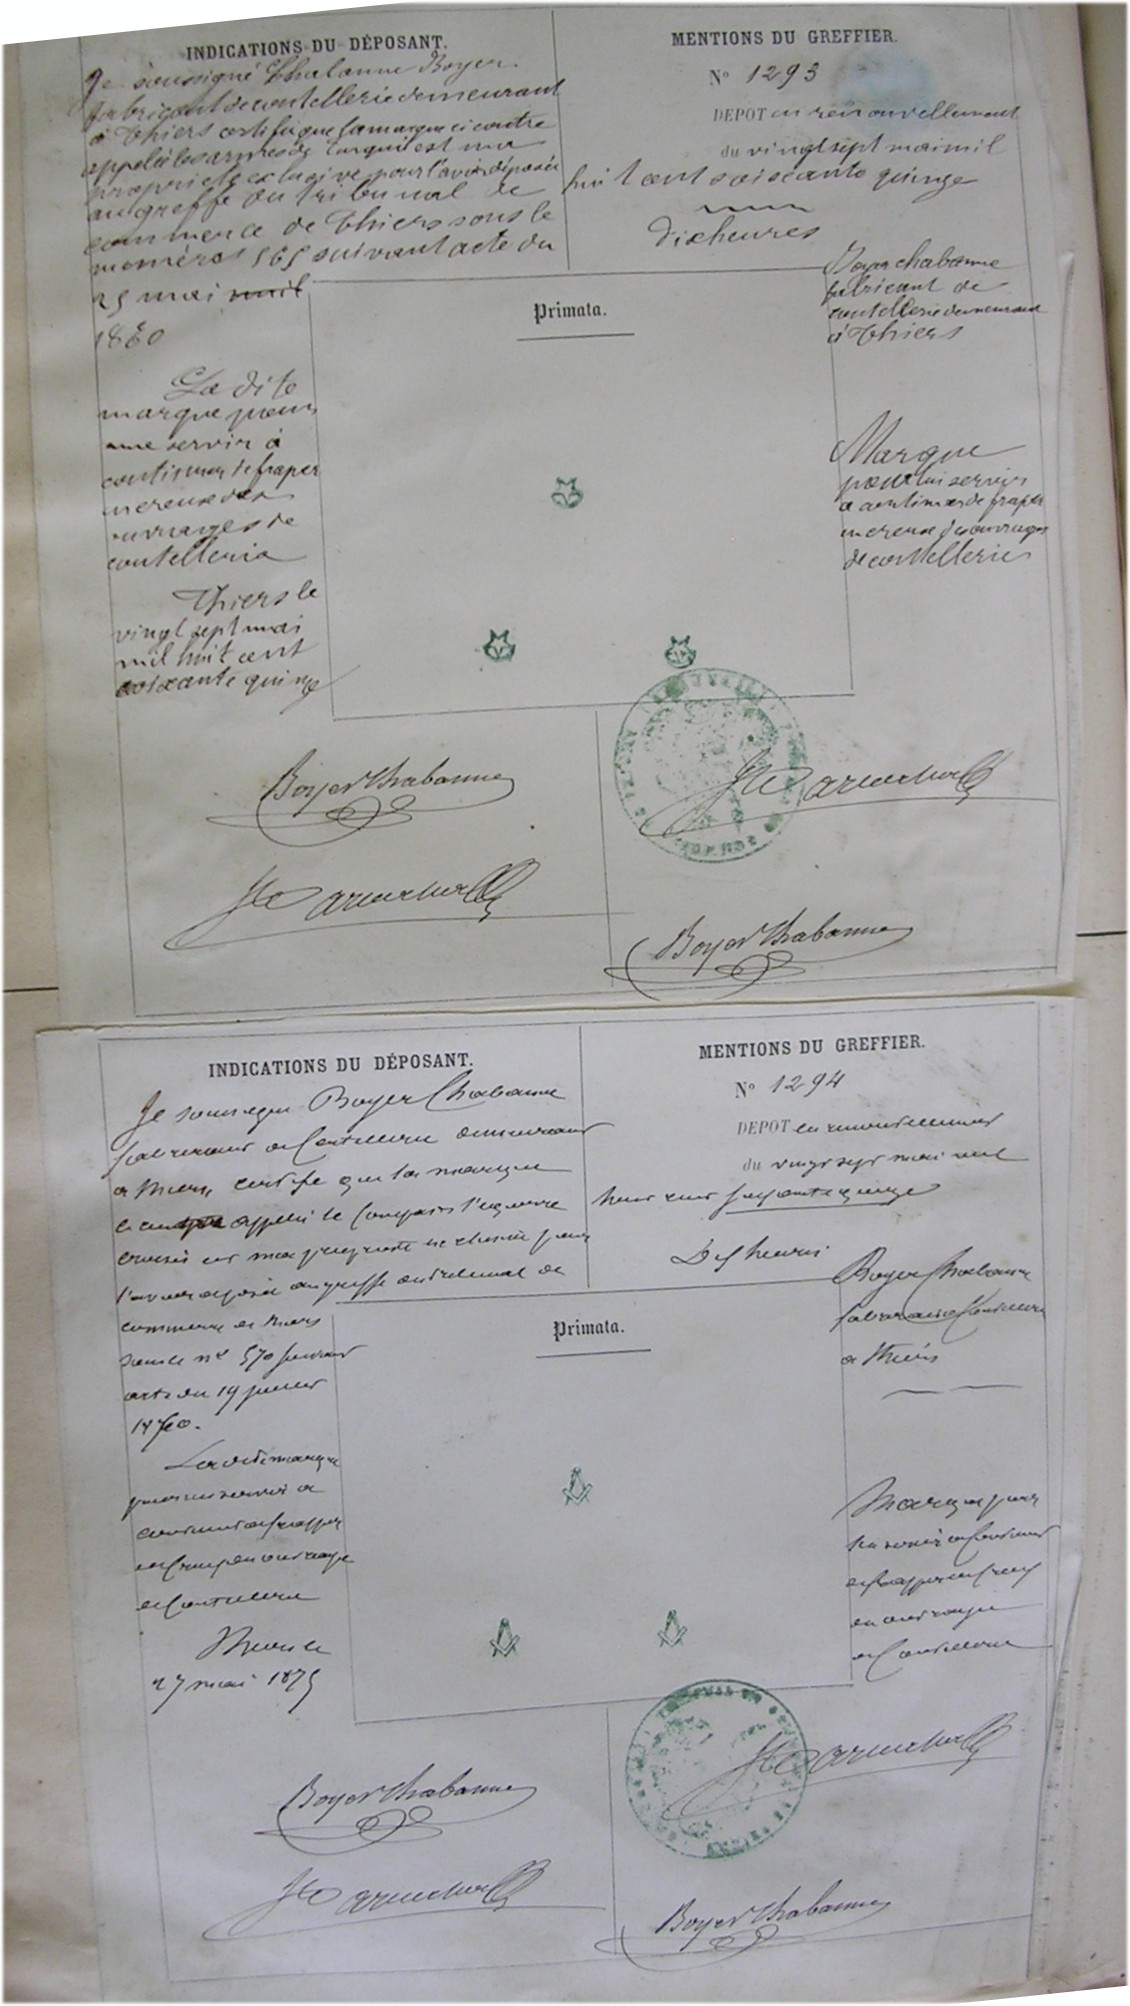 INDICATIONS DU DÉPOSANT.
Je soussigné Chabanne Boyer
fabricant de coutellerie demeurant
à Thiers certifie que la marque ci contre
appelée les armes de Turquie est ma
propriété exclusive pour l'avoir déposée
au greffe du tribunal de
commerce de Thiers sous le
numéros 565 suivant acte du
25 mai mil
1860
La dite
marque pour
me servir à
continuer de fraper
en creux des
ouvrages de
coutelleria
Thiers le
vingt sept mai
mil huit cent
soixante quinze
Boyer Chabanne
MENTIONS DU GREFFIER.
N° 1293
DEPOT en renouvellement
du vingt sept mai mil
huit cent soixante quinze
dix heures
Boyer chabanne
fabricant de
coutellerie demeurant
à Thiers
Primata.
Marque
pour lui servir
a continuer de fraper
en creux des ouvrages
de coutellerie
Boyer Chabanne
INDICATIONS DU DÉPOSANT.
Je soussigné Boyer Chabanne
fabricant de Coutellerie demeurant
a Thiers certifie que la marque
appelée le Compas l'equerre
croisés est ma propriété exclusive pour
l'avoir déposée au greffe du tribunal de
commerce de Thiers
sous le n° 570 suivant
acte du 19
La dite marque
pour me servir a
continuer de frapper
en Creux des ouvrages
de Coutellerie
Thiers le
27 mai 1875
Boyer Chabanne
MENTIONS DU GREFFIER.
N° 1294
DEPOT en renouvellement
du vingt sept mai mil
huit cent soixante quinze
Dix heures
Boyer Chabanne
fabricant de Coutellerie
a Thiers
Primata.
Marque pour
lui servir a Continuer
de frapper en Creux
des ouvrages
de Coutellerie
Boyer Chabanne